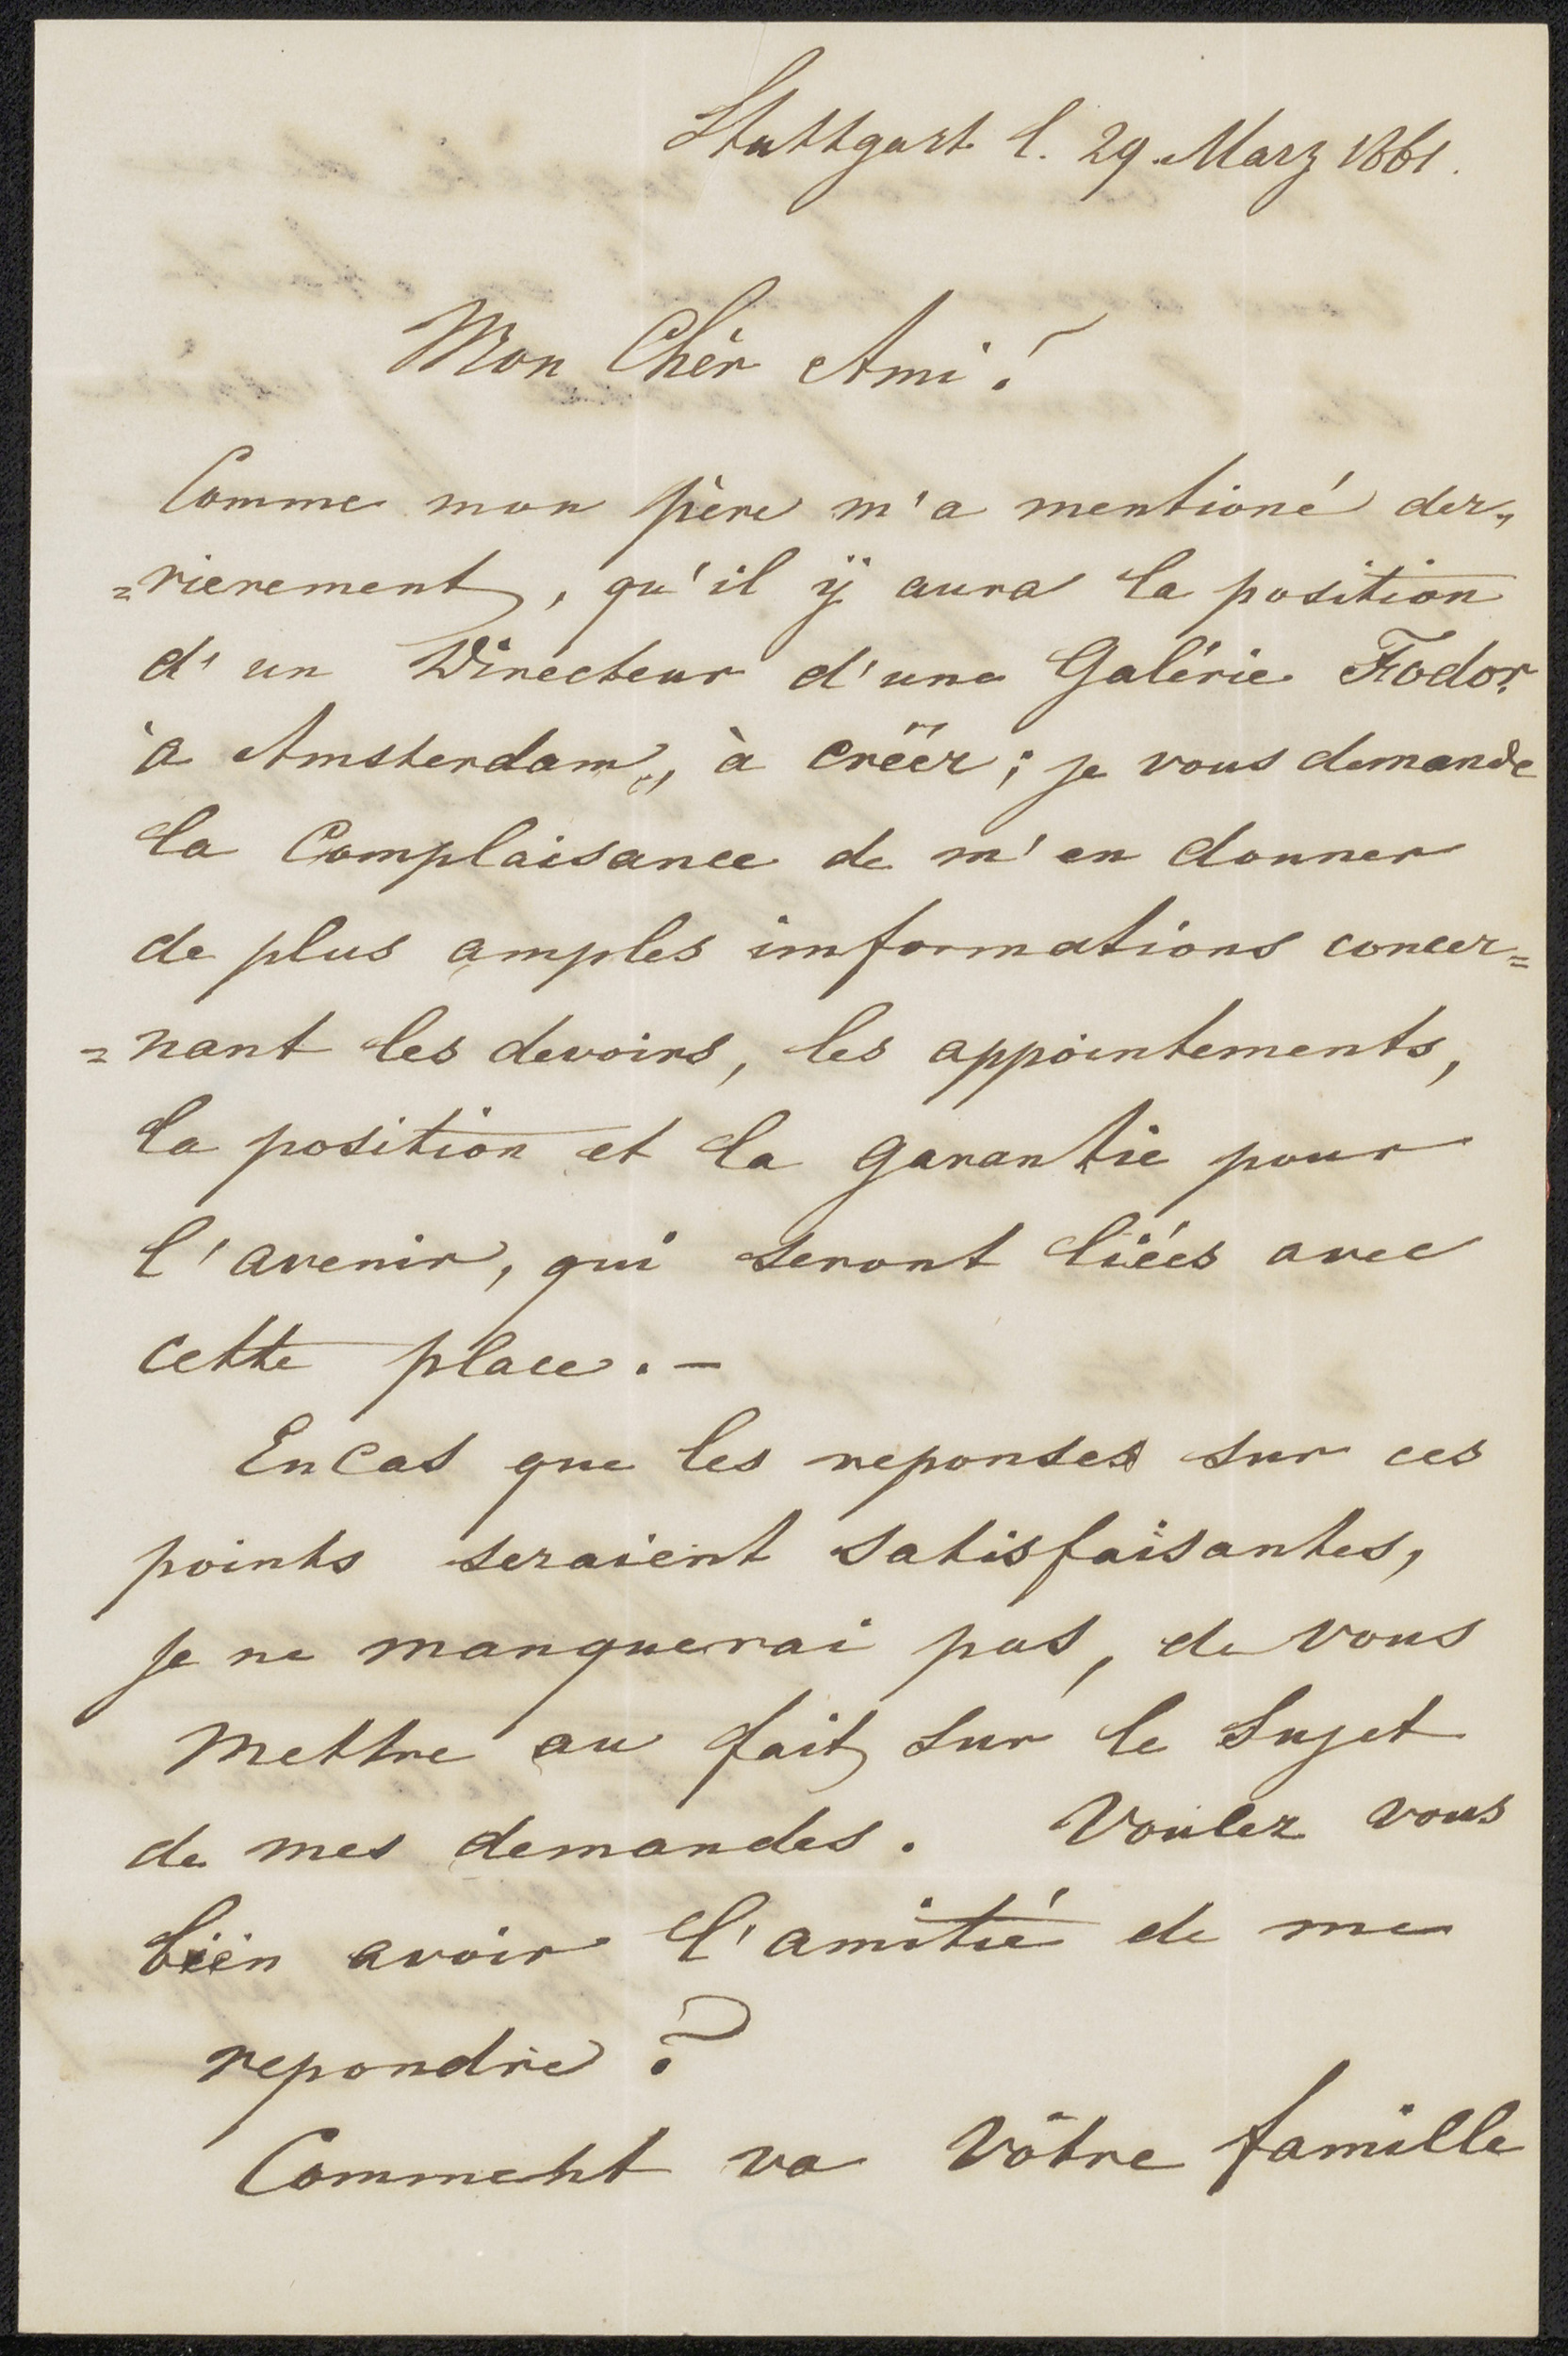 Stuttgart d. 29. Marz 1861.
Mon Chèr Ami!
Comme mon père m'a mentioné der„
=rierement, qu'il ÿ aura la position
d'un Directeur d'une Galérie Fodor
à Amsterdam, à créër; je vous demande
la Complaisance de m'en donner
de plus amples imformations concer=
=nant les devoirs, les appointements,
la position et la garantie pour
l'avenir, qui seront liées avec
cette place. –
En cas que les reponses sur ces
points seraient satisfaisantes,
je ne manquerai pas, de vous
mettre au fait sur le sujet
de mes demandes. Voulez vous
bien avoir l'amitié de me
repondre?
Comment va vôtre famille